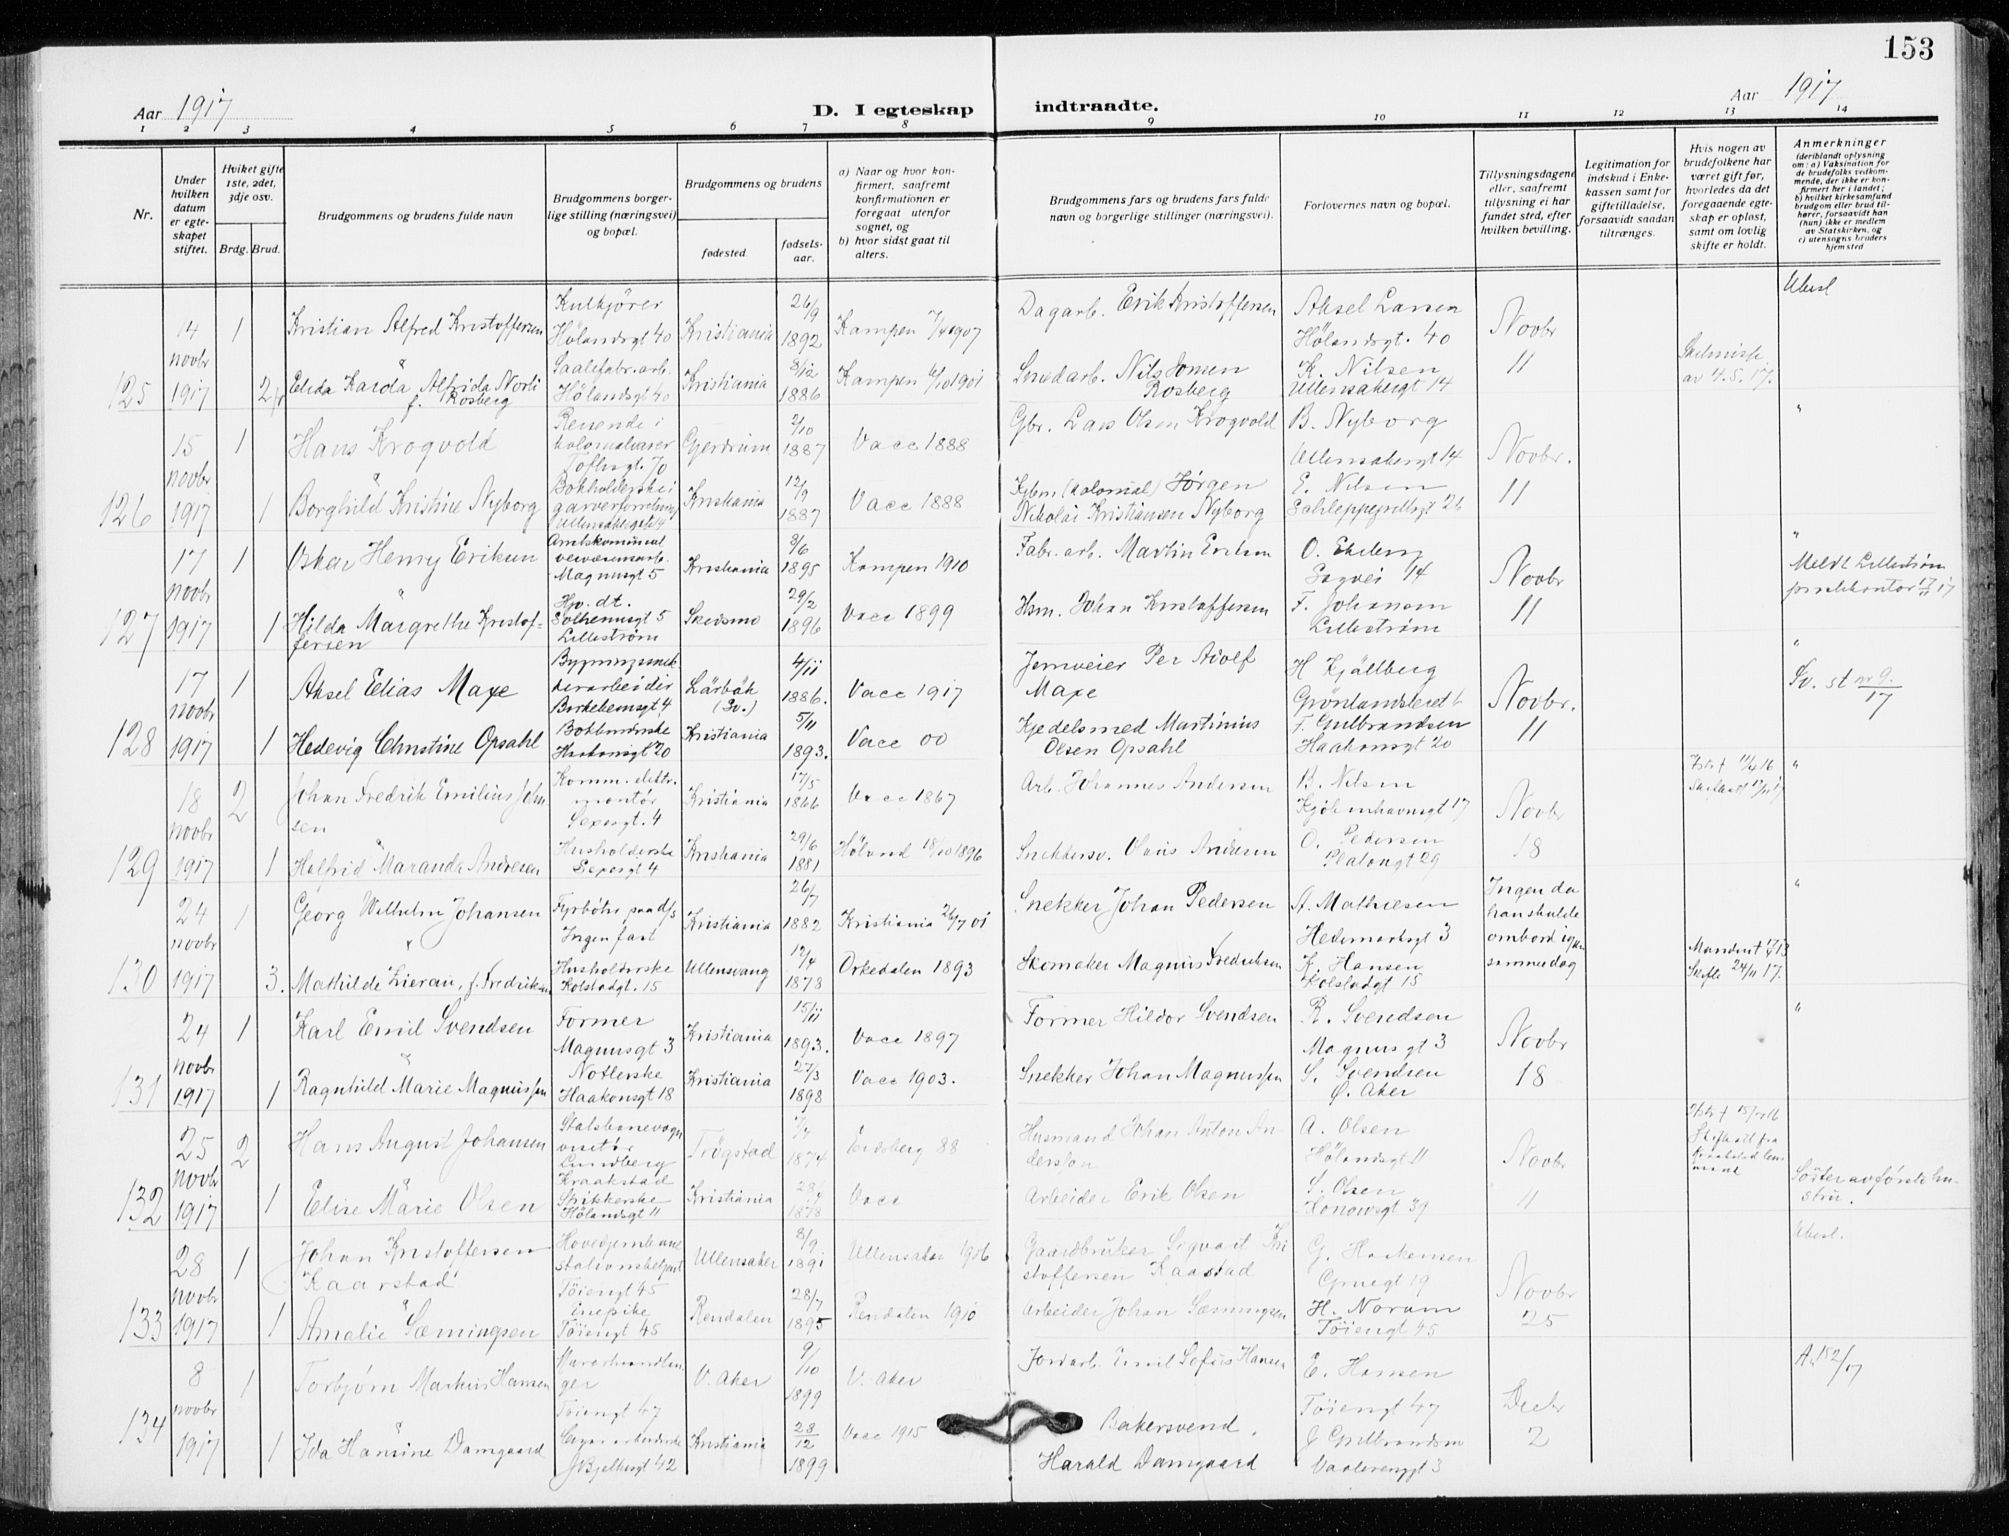 153
Aar 1917
D. I egteskap indtraadte.
Aar 1917
1 2 3 4 5 6 7 8 9 10 11 12 13 14
Nr.
Under hvilken datum er egteskapet stiftet.
Hviket gifte 1ste, 2det, 3dje osv.
Brdg. Brud.
Brudgommens og brudens fulde navn
Brudgommens borgerlige stilling (næringsvei) og bopæl.
Brudgommens og brudens
fødested. fødselsaar.
a) Naar og hvor konfirmert, saafremt konfirmationen er foregaat utenfor sognet, og
b) hvor sidst gaat til alters.
Brudgommens fars og brudens fars fulde navn og borgerlige stillinger (næringsvei).
Forlovernes navn og bopæl.
Tillysningsdagene eller, saafremt tillysning ei har fundet sted, efter hvilken bevilling.
Legitimation for indskud i Enkekassen samt for giftetilladelse, forsaavidt saadan tiltrænges.
Hvis nogen av brudefolkene har været gift før, hvorledes da det foregaaende egteskap er opløst, samt om lovlig skifte er holdt.
Anmerkninger
(deriblandt oplysning om: a) Vaksination for de brudefolks vedkommende, der ikke er konfirmert her i landet; b) hvilket kirkesamfund brudgom eller brud tilhører, forsaavidt han (hun) ikke er medlem av Statskirken, og c) utensogns bruders hjemsted
125
14 novbr 1917
1 Kristian Alfred Kristoffersen
Kulkjører Hölandsgt 40 Kristiania 26/9 1892 Kampen 7/4 1907
Dagarb. Erik Kristoffersen
Aksel Larsen Hölandsgt. 40
Novbr 11
Ubesl
Elida Karda Alfrida Norli f. Rosberg
Hölandsgt 40 Kristiania 8/12 1886 Kampen 6/10 1901
Nils Rosberg
K. Nilsen Ullensakergt 14
av 4.5.17.
126
15 novbr 1917
1 Hans Krogvold
Reisende i kolonialvarer Toftesgt. 70 Gjerdrum 2/10 1887 Vacc 1888
Gbr. Lars Olsen Krogvold
B. Nyborg Ullensakergt 14
Novbr. 11
1 Borghild Kristine Nyborg
Kristiania 12/9 1887 Vacc 1888
(kolonial) Jørgen Nikolai Kristiansen Nyborg
E. Nilsen
127
17 novbr 1917
1 Oskar Henry Eriksen
Magnusgt 5 Kristiania 8/6 1895 Kampen 1910
Fabr. arb. Martin Eriksen
O. Ekeberg Sagvei 14
Novbr 11
Meldt Lillestrøm
1 Hilda Margrethe Kristoffersen
Hp. dt. Solheimsgt 5 Lillestrøm Skedsmo 29/2 1896 Vacc 1899
Hsm. Johan Kristoffersen
F. Johansen Lillestrøm
128
17 novbr 1917
1 Aksel Elias Maxe
Birkebeinsgt 4 Lärbäk (Sv.) 4/11 1886. Vacc 1917
Jernveier Per Adolf Maxe
H Kjällberg Grönlandsleret 6
Novbr. 11
Sv. st nr 9. 17
1 Hedevig Christine Opsahl
Haakonsgt 20 Kristiania 5/11 1893. Vacc 00
Kjedelsmed Martinius Olsen Opsahl
F. Gulbrandsen Haakonsgt 20
129
18 novbr 1917
2 Johan Fredrik Emilius Johnsen
Komm. elektr. montör Sexesgt. 4 Kristiania 17/5 1866 Vacc 1867
Arb. Johannes Andersen
B. Nilsen Kjöbenhavnsgt 17
Novbr 18
1 Halfrid Maranda Andresen
Husholderske Sexesgt 4 Kristiania 29/6 1881 Höland 18/10 1896
Snekkersv. Olaus Andresen
O. Pedersen Platousgt 29
130
24 novbr 1917
1 Georg Wilhelm Johansen
Fyrbøter paa d/s Ingen fast Kristiania 26/7 1882 Kristiania 26/7 01
Snekker Johan Pedersen
A. Mathiesen Hedemarksgt 3
Ingen da han skulde ombord igjen samme dag
3. Mathilde Lierau, f. Fredriksen
Husholderske Kolstadgt. 15 Ullensvang 12/4 1878 Orkedalen 1893
Skomaker Magnus Fredriksen
K. Hansen Kolstadgt 15
Skifte 24/11 17.
131
24 novbr 1917
1 Karl Emil Svendsen
Former Magnusgt 3 Kristiania 15/11 1893. Vacc 1897
Former Hildor Svendsen
R. Svendsen Magnusgt 3
Novbr 18
1 Ragnhild Marie Magnussen
Haakonsgt 18 Kristiania 27/3 1898 Vacc 1903.
Snekker Johan Magnussen
S. Svendsen Ø. Aker
132
25 novbr 1917
2 Hans August Johansen
Statsbanevogn visitør Lundberg Kraakstad Trögstad 1874 Eidsberg 88
Husmand Johan Anton Andersson
A. Olsen Hölandsgt 11
Novbr 11
1 Elise Marie Olsen
Strikkerske Hölandsgt 11 Kristiania 1878 Vacc
Arbeider Erik Olsen
S. Olsen Konowsgt 39
Søster av første hustru.
133
28 novbr 1917
1 Johan Kristoffersen Kaarstad
Hovedjernbane stationsbetjent Töiengt 45 Ullensaker 8/9 1891 Ullensaker 1906
Gaardbruker Sigvart Kristoffersen Kaastad
G. Haakensen Gruegt 19
Novbr 25
Ubesl.
1 Amalie Sæmingsen
Töiengt 45 Rendalen 28/7 1895 Rendalen 1910
Arbeider Johan Sæmingsen
H. Norum Töiengt 45
134
8 novbr 1917
1 Torbjørn Markus Hansen
Töiengt 47 V. Aker 9/10 1899 V. Aker
Jordarb. Emil Sofus Hansen
E. Hansen Töiengt 47
Decbr 2
1 Ida Hansine Damgaard
42 Kristiania 23/12 1899 Vacc 1915
Bakersvend. Harald Damgaard
J Gulbrandsen Vaalerenggt 3